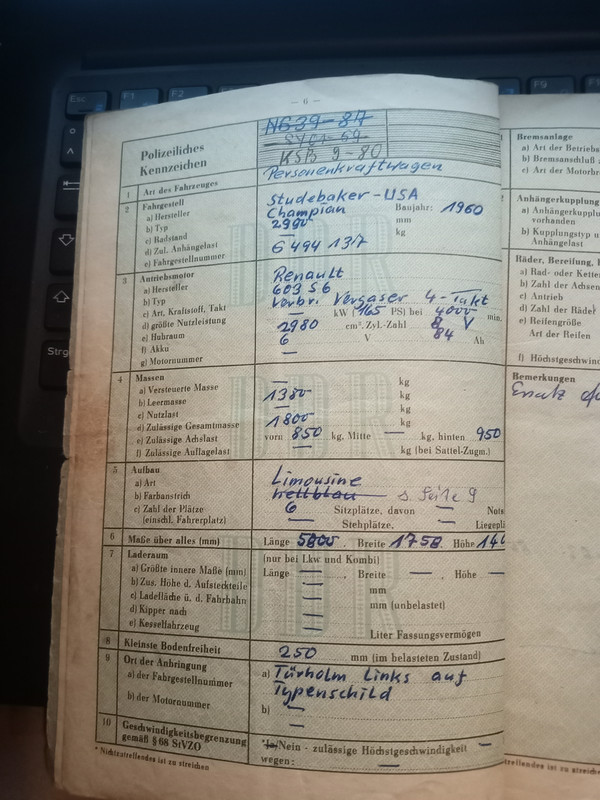 Esc
F1
F2
F9
Strg
— 6 —
Polizeiliches
Kennzeichen
N639-87
KSB 9-80
1 Art des Fahrzeuges Personenkraftwagen
2 Fahrgestell
a) Hersteller Studebaker-USA
b) Typ Champian Baujahr: 1960
c) Radstand 2990 mm
d) Zul. Anhängelast — kg
e) Fahrgestellnummer 6494 137
3 Antriebsmotor
a) Hersteller Renault
b) Typ 603 S6
c) Art, Kraftstoff, Takt Verbr. Vergaser 4-Takt
d) größte Nutzleistung — kW (165 PS) bei 4000 min.
e) Hubraum 2980 cm³ Zyl.-Zahl 8
f) Akku 6 V 84 Ah
g) Motornummer —
4 Massen
a) Versteuerte Masse — kg
b) Leermasse 1380 kg
c) Nutzlast — kg
d) Zulässige Gesamtmasse 1800 kg
e) Zulässige Achslast vorn 850 kg, Mitte — kg, hinten 950
f) Zulässige Auflagelast — kg (bei Sattel-Zugm.)
5 Aufbau
a) Art Limousine
b) Farbanstrich hellblau s. Seite 9
c) Zahl der Plätze 6 Sitzplätze, davon — Nots
(einschl. Fahrerplatz) Stehplätze, — Liegepl
6 Maße über alles (mm) Länge 5000, Breite 1758 Höhe 140
7 Laderaum (nur bei Lkw und Kombi)
a) Größte innere Maße (mm) Länge —, Breite —, Höhe —
b) Zus. Höhe d. Aufsteckteile — mm
c) Ladefläche ü. d. Fahrbahn — mm (unbelastet)
d) Kipper nach —
e) Kesselfahrzeug — Liter Fassungsvermögen
8 Kleinste Bodenfreiheit 250 mm (im belasteten Zustand)
9 Ort der Anbringung
a) der Fahrgestellnummer a) Türholm Links auf
Typenschild
b) der Motornummer b) —
—
10 Geschwindigkeitsbegrenzung
gemäß § 68 StVZO
*Ja/Nein - zulässige Höchstgeschwindigkeit —
wegen: —
* Nichtzutreffendes ist zu streichen
Bremsanlage
a) Art der Betriebs
b) Bremsanschluß
c) Art der Motorbr
Anhängerkupplung
a) Anhängerkupplu
vorhanden
b) Kupplungstyp u
Anhängelast
Räder, Bereifung,
a) Rad- oder Kette
b) Zahl der Achsen
c) Antrieb
d) Zahl der Räder
e) Reifengröße
Art der Reifen
f) Höchstgeschwin
Bemerkungen
Ersatz
treffendes ist zu streiche
DDR
DDR
DDR